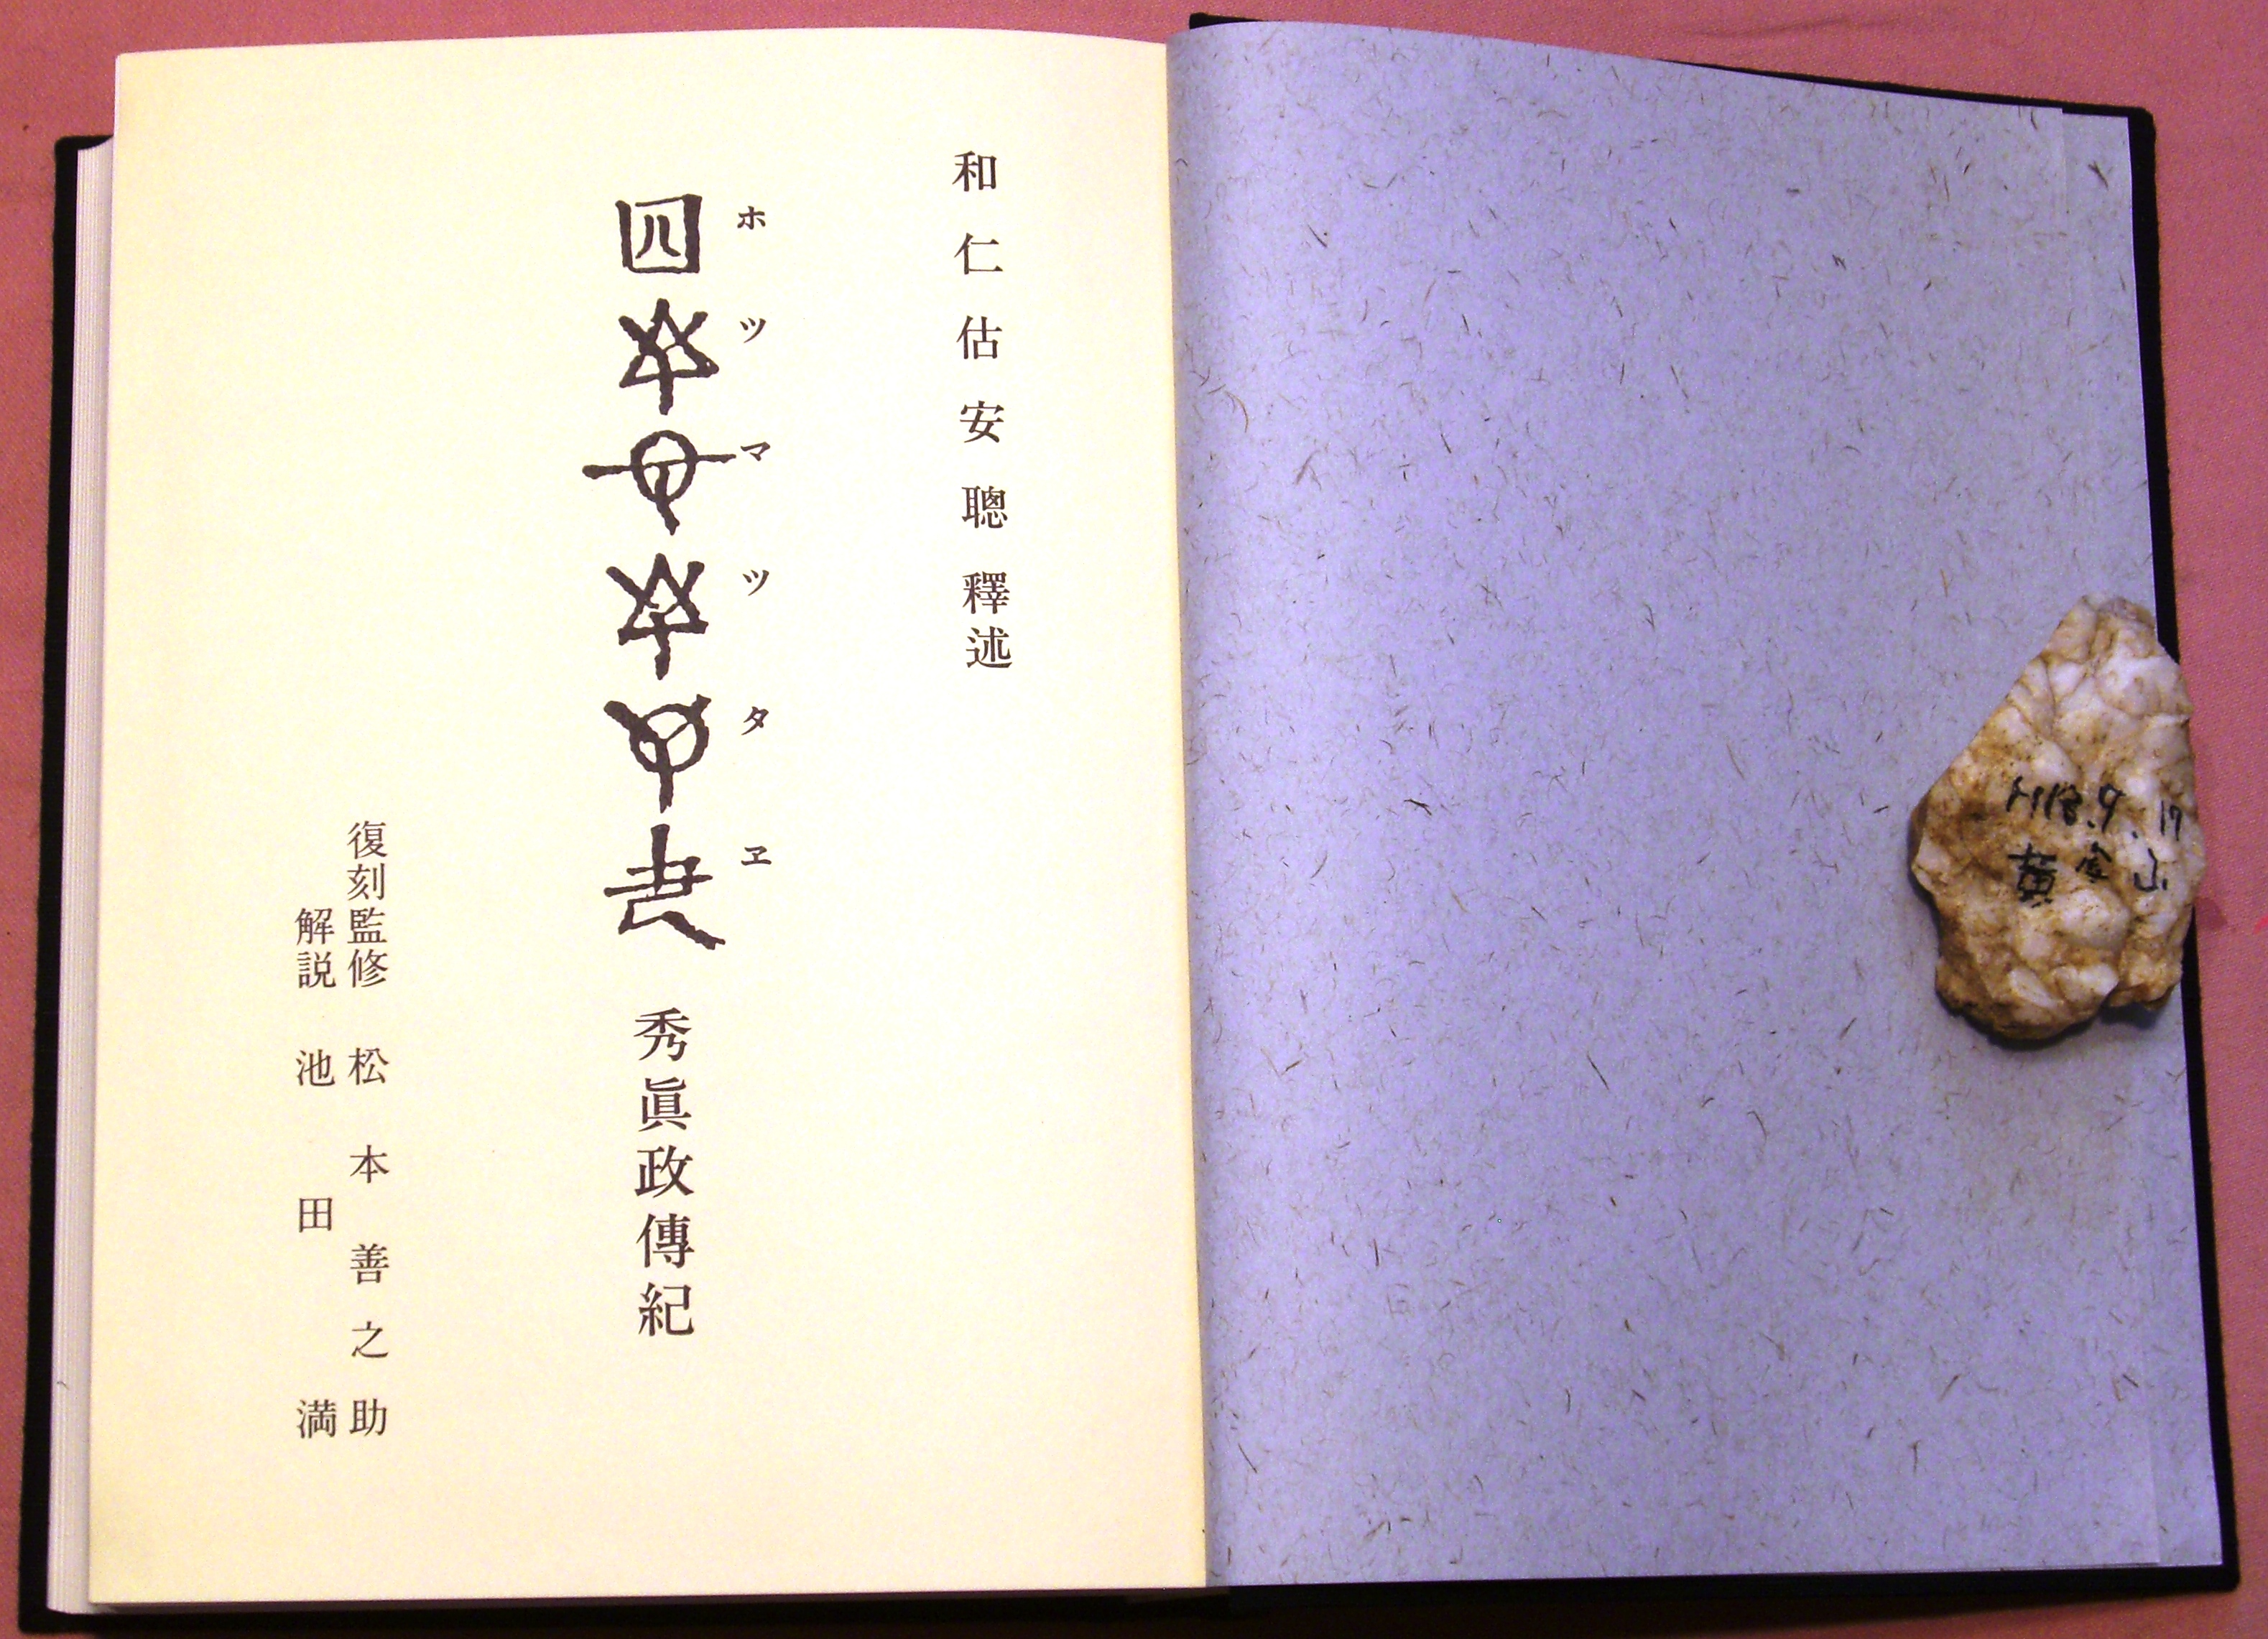 和仁估安聰釋述
ホツマツタヱ
秀眞政傳紀
復刻監修 松本善之助
解説 池田満
H18.9.17
黄金山